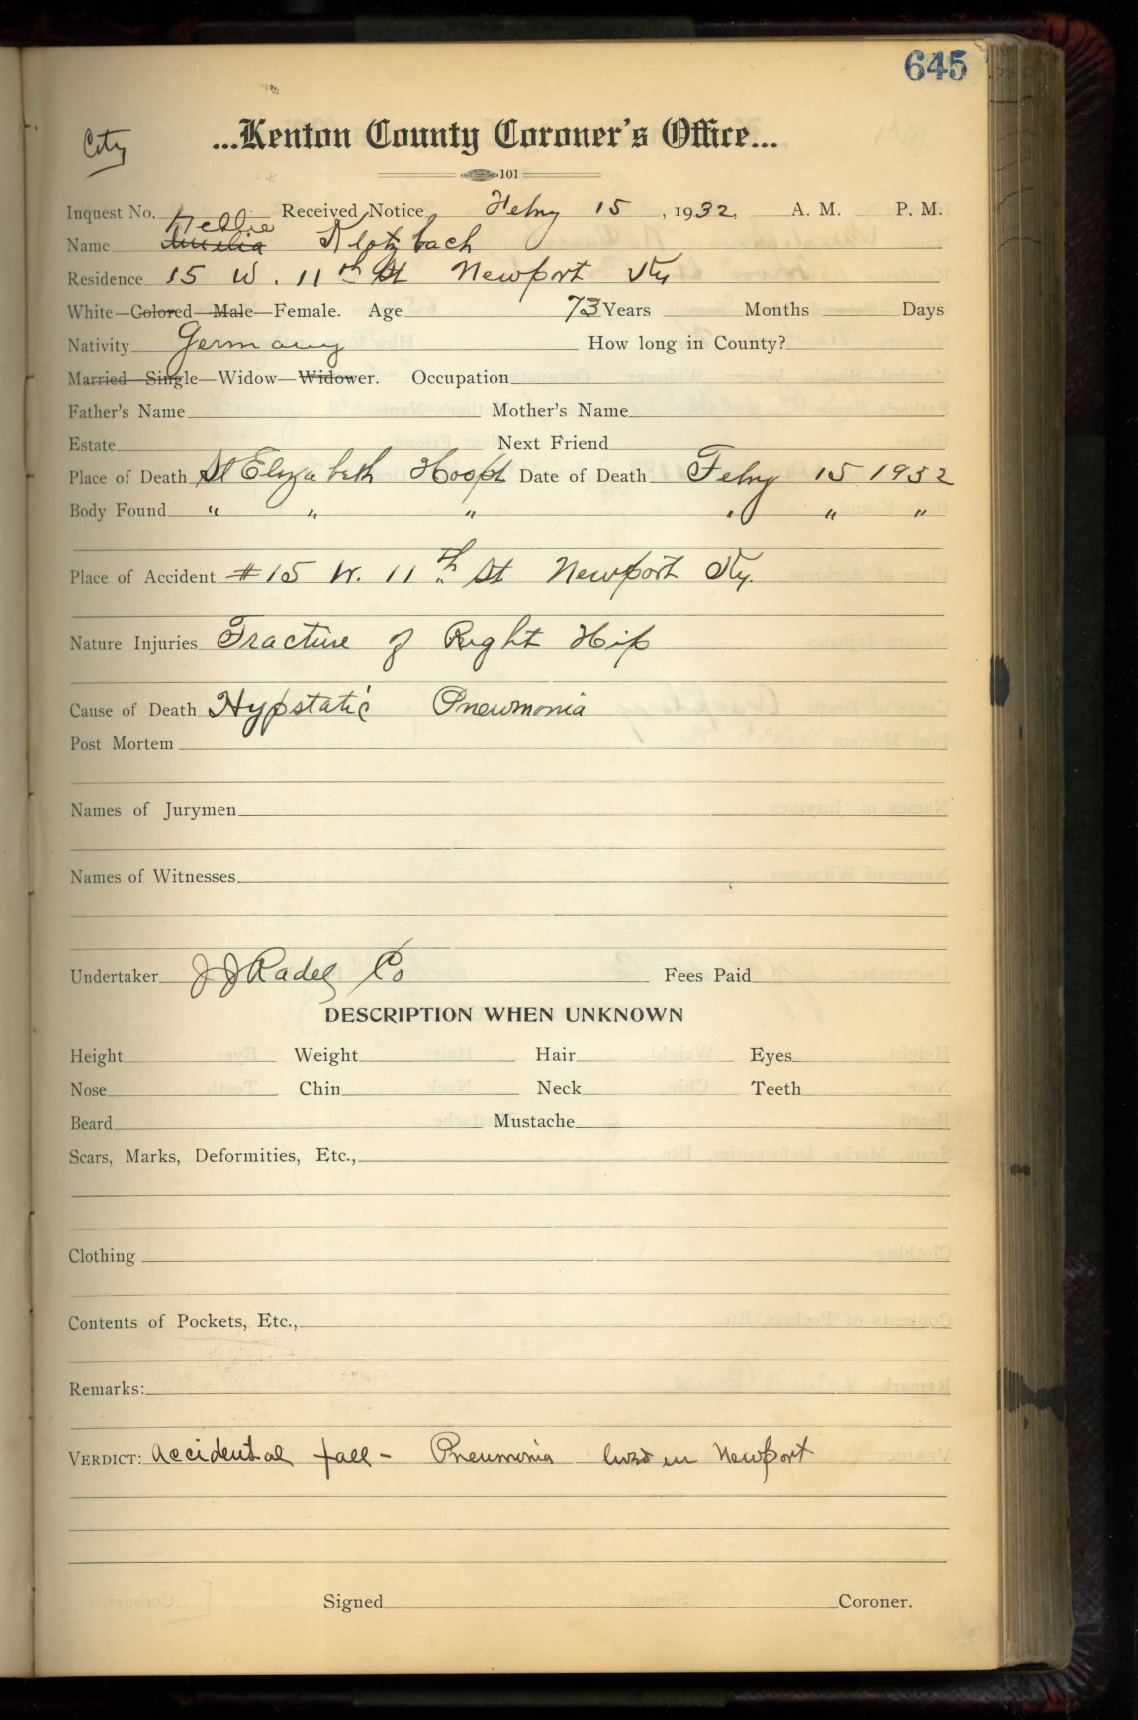 645
City
...Kenton County Coroner's Office...
101
Inquest No. Received Notice Febry 15, 1932, A. M. P. M.
Nellie
Name Amelia Klotzbach
Residence 15 W. 11th St Newport Ky
White—Colored—Male—Female. Age 73 Years Months Days
Nativity Germany How long in County?
Married—Single—Widow—Widower. Occupation
Father's Name Mother's Name
Estate Next Friend
Place of Death St Elizabeth Hospt Date of Death Febry 15 1932
Body Found " " " " " "
Place of Accident #15 W. 11th St Newport Ky.
Nature Injuries Fracture of Right Hip
Cause of Death Hypstatic Pneumonia
Post Mortem
Names of Jurymen
Names of Witnesses
Undertaker J J Radel Co Fees Paid
DESCRIPTION WHEN UNKNOWN
Height Weight Hair Eyes
Nose Chin Neck Teeth
Beard Mustache
Scars, Marks, Deformities, Etc.,
Clothing
Contents of Pockets, Etc.,
Remarks:
VERDICT: Accidental fall - Pneumonia lived in Newport
Signed Coroner.